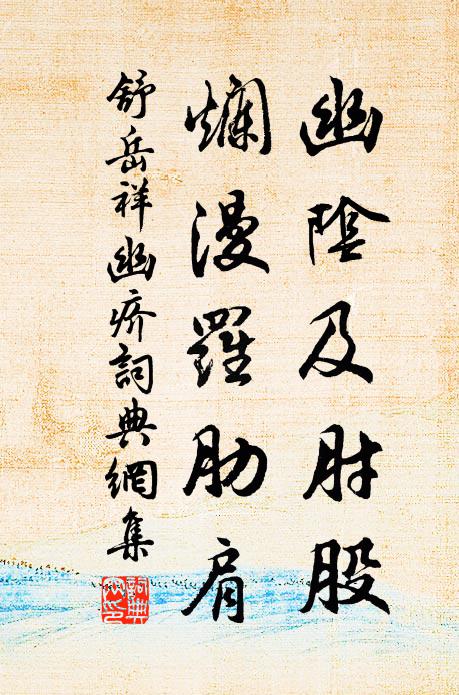 幽陰及肘股
爛漫羅肋肩
舒岳祥幽疥詞典網集